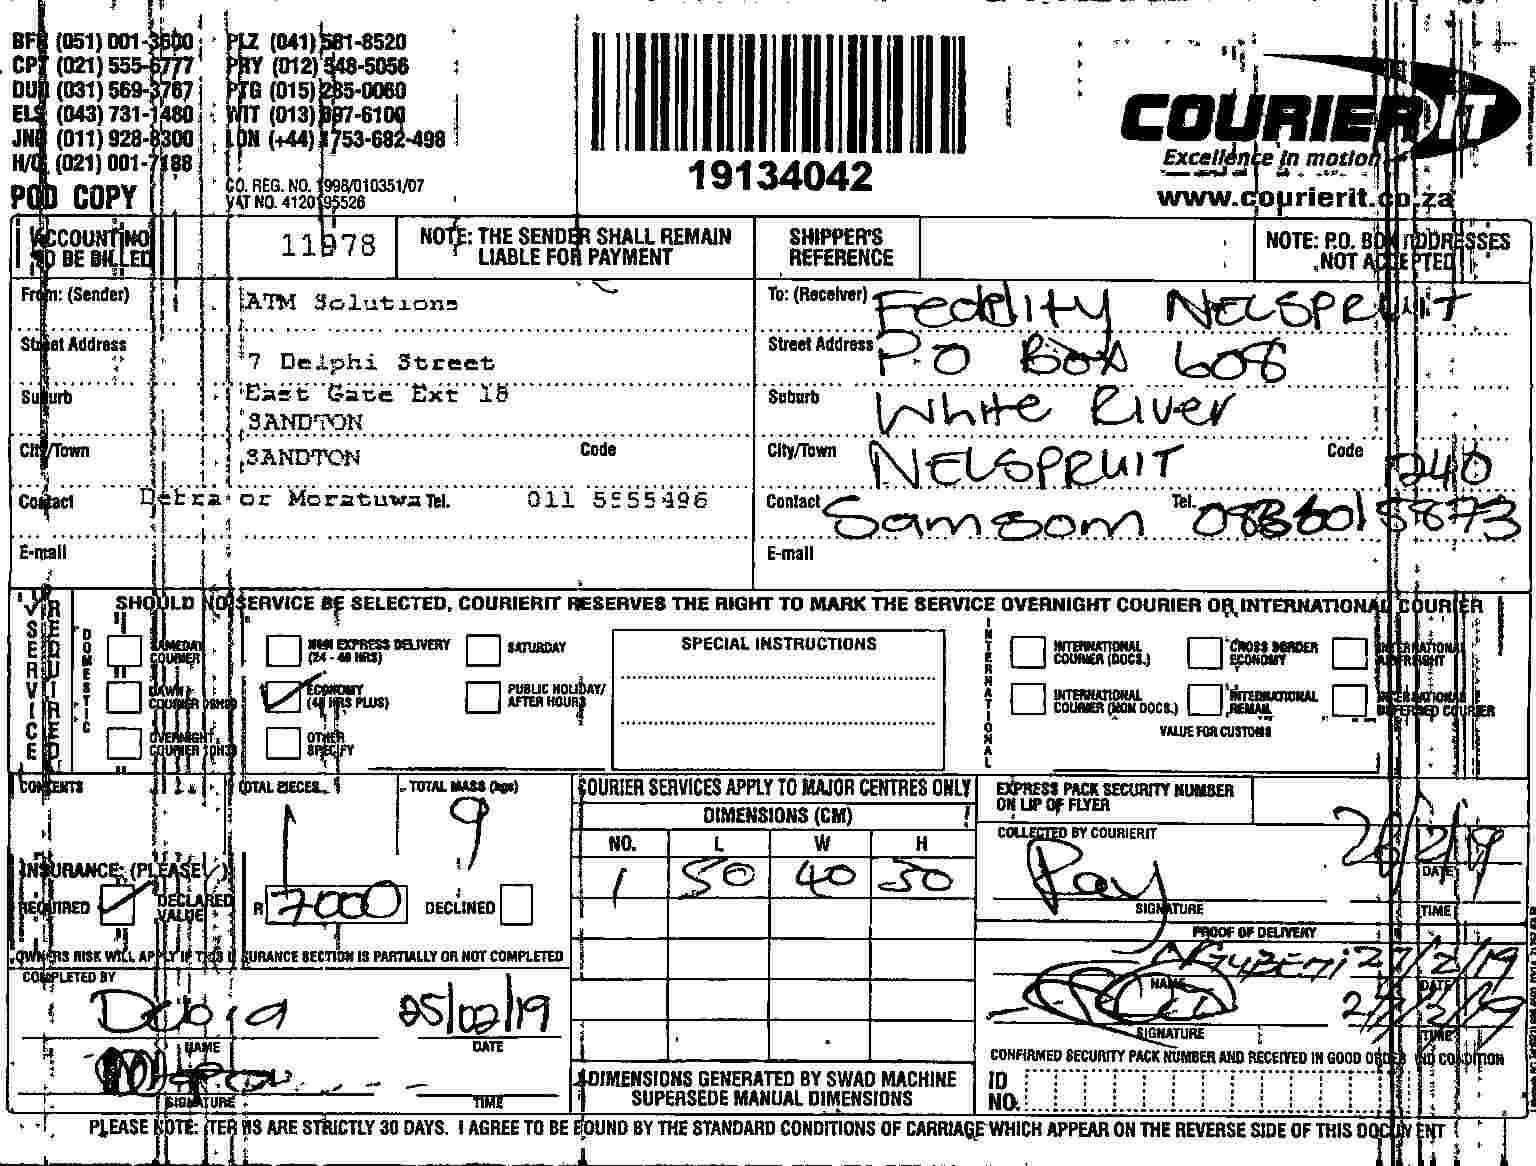 BFN (051) 001-3600 PLZ (041) 581-8520
CPT (021) 555-6777 PRY (012) 548-5056
DUR (031) 569-3767 PTG (015) 285-0060
ELS (043) 731-1480 WIT (013) 697-6100
JNB (011) 928-8300 LON (+44) 1753-682-498
H/O (021) 001-7188
POD COPY
CO. REG. NO. 1998/010351/07
VAT NO. 4120195526
19134042
COURIERIT
Excellence in motion
www.courierit.co.za
ACCOUNT NO TO BE BILLED 11978
NOTE: THE SENDER SHALL REMAIN LIABLE FOR PAYMENT
SHIPPER'S REFERENCE
NOTE: P.O. BOX ADDRESSES NOT ACCEPTED
From: (Sender) ATM Solutions
Street Address 7 Delphi Street
Suburb East Gate Ext 18
SANDTON
City/Town SANDTON Code
Contact Debra or Moratuwa Tel. 011 5555496
E-mail
To: (Receiver) Fedelity NELSPRUIT
Street Address P O Box 608
Suburb White River
City/Town NELSPRUIT Code 240
Contact Samsom Tel.
E-mail
SERVICE REQUIRED
SHOULD NO SERVICE BE SELECTED, COURIERIT RESERVES THE RIGHT TO MARK THE SERVICE OVERNIGHT COURIER OR INTERNATIONAL COURIER
DOMESTIC
SAMEDAY COURIER
DAWN COURIER
OVERNIGHT COURIER
NON EXPRESS DELIVERY (24 - 48 HRS)
ECONOMY (48 HRS PLUS)
OTHER SPECIFY
SATURDAY
PUBLIC HOLIDAY/ AFTER HOURS
SPECIAL INSTRUCTIONS
INTERNATIONAL
INTERNATIONAL COURIER (DOCS.)
INTERNATIONAL COURIER (NON DOCS.)
CROSS BORDER ECONOMY
INTERNATIONAL REMAIL
INTERNATIONAL AIRFREIGHT
INTERNATIONAL DEFERRED COURIER
VALUE FOR CUSTOMS
CONTENTS
TOTAL PIECES 1
TOTAL MASS (kgs) 9
INSURANCE: (PLEASE ✓)
REQUIRED ✓ DECLARED VALUE R 7000 DECLINED
OWNERS RISK WILL APPLY IF THIS INSURANCE SECTION IS PARTIALLY OR NOT COMPLETED
COMPLETED BY
Debra 25/02/19
NAME DATE
SIGNATURE TIME
COURIER SERVICES APPLY TO MAJOR CENTRES ONLY
DIMENSIONS (CM)
NO. L W H
1 50 40 50
DIMENSIONS GENERATED BY SWAD MACHINE
SUPERSEDE MANUAL DIMENSIONS
EXPRESS PACK SECURITY NUMBER ON LIP OF FLYER
COLLECTED BY COURIERIT
Ray 26/2/19
DATE
SIGNATURE TIME
PROOF OF DELIVERY
27/2/19
NAME DATE
SIGNATURE TIME
CONFIRMED SECURITY PACK NUMBER AND RECEIVED IN GOOD ORDER AND CONDITION
ID NO.
PLEASE NOTE: TERMS ARE STRICTLY 30 DAYS. I AGREE TO BE BOUND BY THE STANDARD CONDITIONS OF CARRIAGE WHICH APPEAR ON THE REVERSE SIDE OF THIS DOCUMENT